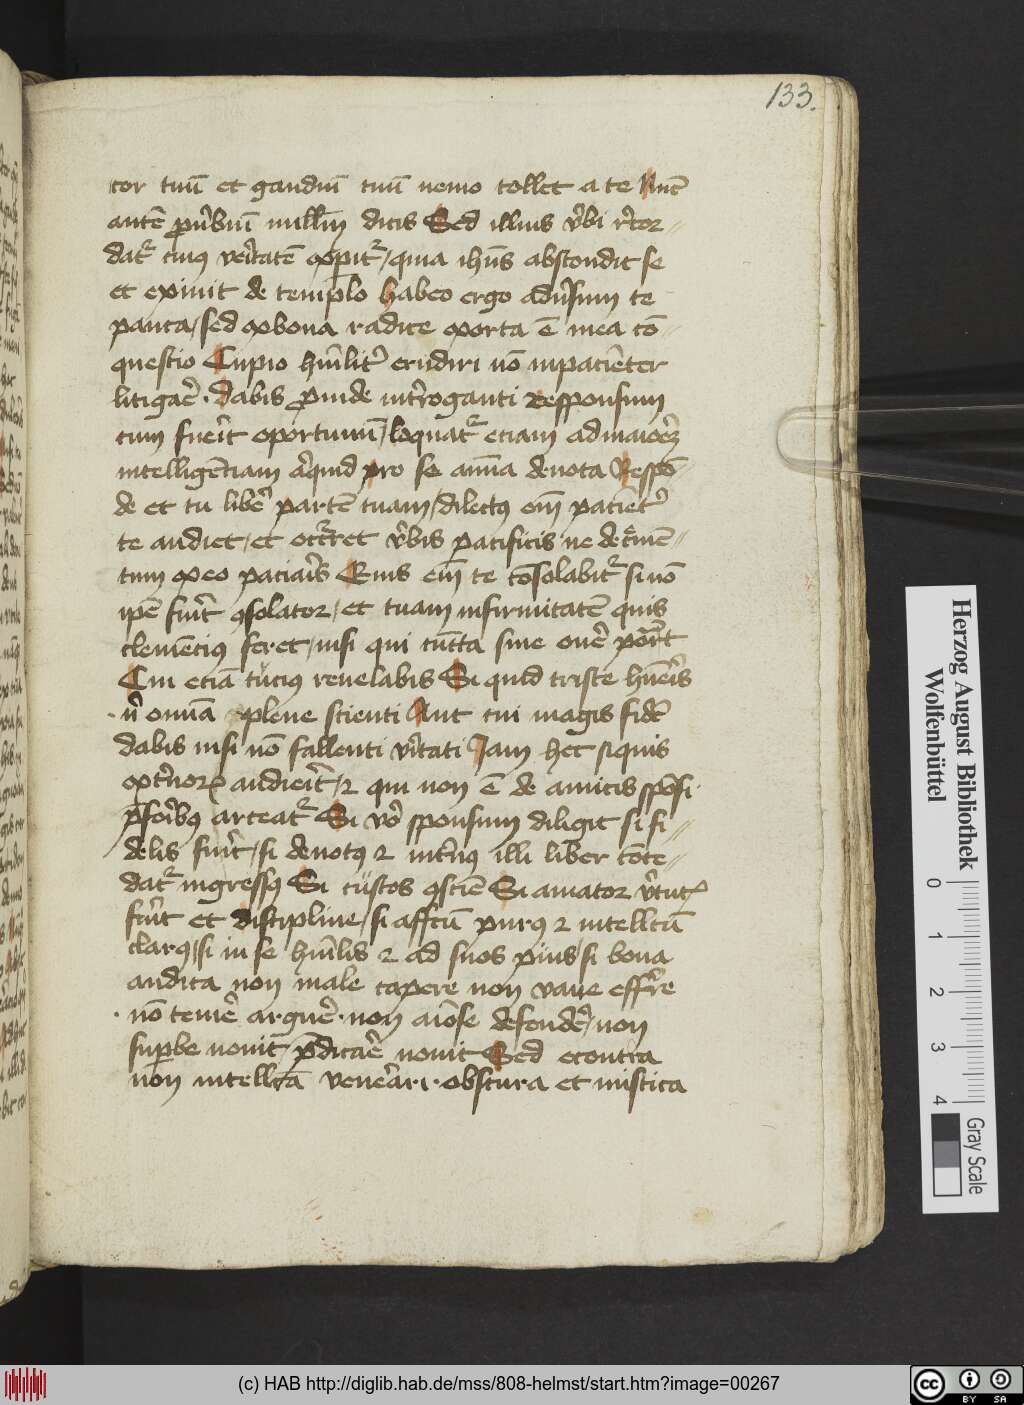 133.
cor tuū et gaudiū tuū nemo tollet a te Nūc
autē ꝓu̾biū nullū dicis Sed illius v̾bi r̾cor⸗
dat᷑ cuiꝰ ueritatē expit᷑ / quia ihūs abscondit se
et exiuit de templo habeo ergo adu̾sum te
pauca / sed ex bona radice exorta ē mea cō⸗
questio Cupio hūilit̾ erudiri nō inpaciēter
litigar̄ · Dabis ꝓinde int̾roganti Responsum
cum fuerit oportunū / loquat᷑ etiam ad maiorē
intelligētiam aliquid pro se anīa deuota Respō⸗
de et tu liber̄ partē tuam / dilectus eīm paciēt̾
te audiet / et occ̾ret v̾bis pacificis ne det̾mē⸗
tum ex eo paciaris Quis eīm te cōsolabit᷑ si nō
ip̄e fuit̾ ꝯsolator / et tuam infirmitatē quis
clemēcius feret / nisi qui cūcta sine oner̄ portat
Cui eciā tuciꝰ reuelabis Si quid triste hūeris
nisi omnia plene scienti Aut cui magis fidē
dabis nisi nō fallenti v̾itati Iam hec si quis
ext̾ioꝝ audierit / ⁊ qui non ē de amicis sponsi
p̄foribꝰ arceat᷑ Si v̊o sponsum diligit si fi⸗
delis fuit̾ / si deuotꝰ ⁊ int̾nꝰ illi liber cōce⸗
dat᷑ ingressꝰ Si custos ꝯsciē Si amator v̾tutū
fuit̾ et discipline / si affectū purꝰ ⁊ intellectū
clarꝰ / si in se hūilis ⁊ ad suos pius / si bona
audita non male capere non vane effer̄re
nō temer̄ arguer̄ · non aīose defender̄ / non
sup̱be nouit / p̄dicar̄ nouit Sed econtra
non intellecta venerari · obscura et mistica
Herzog August Bibliothek
Wolfenbüttel
0 1 2 3 4
Gray Scale
(c) HAB http://diglib.hab.de/mss/808-helmst/start.htm?image=00267
cc BY SA